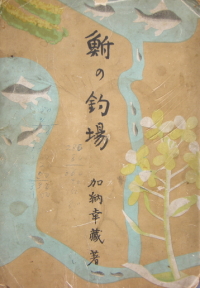 鮒の釣場
加納幸藏著